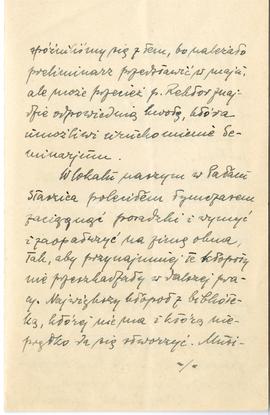 spóźniliśmy się z tem, bo należało
preliminarz przedstawić w maju,
ale może przecież p. Rektor znaj-
dzie odpowiednią kwotę, która
umożliwi uruchomienie Se-
minarjum.
W lokalu naszym w Pałacu
Staszica poleciłem tymczasem
zaciągnąć posadzki i umyć
i zaopatrzyć na zimę okna,
tak, aby przynajmniej te kłopoty
nie przeszkadzały w dalszej pra-
cy. Największy kłopot z bibliote-
ką, której nie ma i która nie-
prędko da się stworzyć. Musi-
-/-